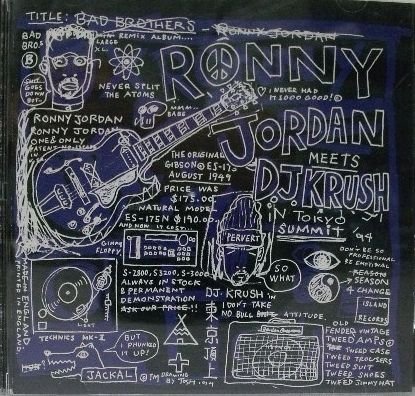 TITLE: BAD BROTHERS RONNY JORDAN
BAD
BROS.
B
REMIX ALBUM....
LARGE
XL.
RONNY
NEVER SPLIT
THE ATOMS
I NEVER HAD
IT SOOO GOOD!©
GOES
DOWN
BUT..
MMM..
BABE
JORDAN
RONNY JORDAN
RONNY JORDAN
ONE & ONLY
MEETS
THE ORIGINAL
GIBSON © ES-175
AUGUST 1949
DJ.KRUSH
PRICE WAS
$175.00
NATURAL MODEL
ES-175N $190.00
AND NOW IT COST..
IN TOKYO
SUMMIT '94
GIMME
FLOPPY
PERVERT
DON'T BE SO
PROFESSIONAL
BE EMOTIONAL
REASON
SEASON
CHANGE
SO
WHAT
S-2800, S3200, S-3000
ALWAYS IN STOCK
& PERMANENT
DEMONSTRATION
ASK OUR PRICE!!
MADE IN ENGLAND
PRINTED IN ENGLAND.
DJ. KRUSH IN
I DON'T TAKE
NO BULL ATTITUDE
ISLAND
RECORDS
LIGHT
TECHNICS MK-II
OLD
FENDER VINTAGE
TWEED AMP/50
TWEED CASE
TWEED TROUSERS
TWEED SUIT
TWEED SHOES
TWEED JIMMY HAT
BUT
I PHUNKED
IT UP!
JACKAL
©TM DRAWING
BY TOSH .94